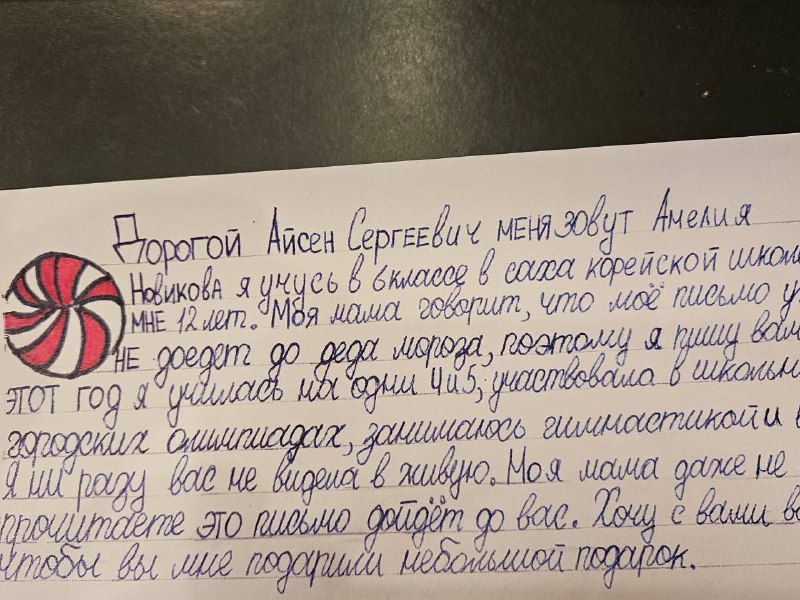 Дорогой Айсен Сергеевич меня зовут Амелия
Новикова я учусь в 6 классе в саха корейской школе
мне 12 лет. Моя мама говорит, что моё письмо
не доедет до деда мороза, поэтому я пишу вам
этот год я училась на одни 4 и 5, участвовала в
городских олимпиадах, занимаюсь гимнастикой и
Я ни разу вас не видела в живую. Моя мама даже не
прочитаете это письмо дойдёт до вас. Хочу с вами
чтобы вы мне подарили небольшой подарок.